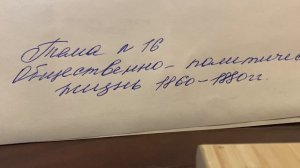 Тема N 16
Общественно-политичес
жизнь 1860-1880гг.